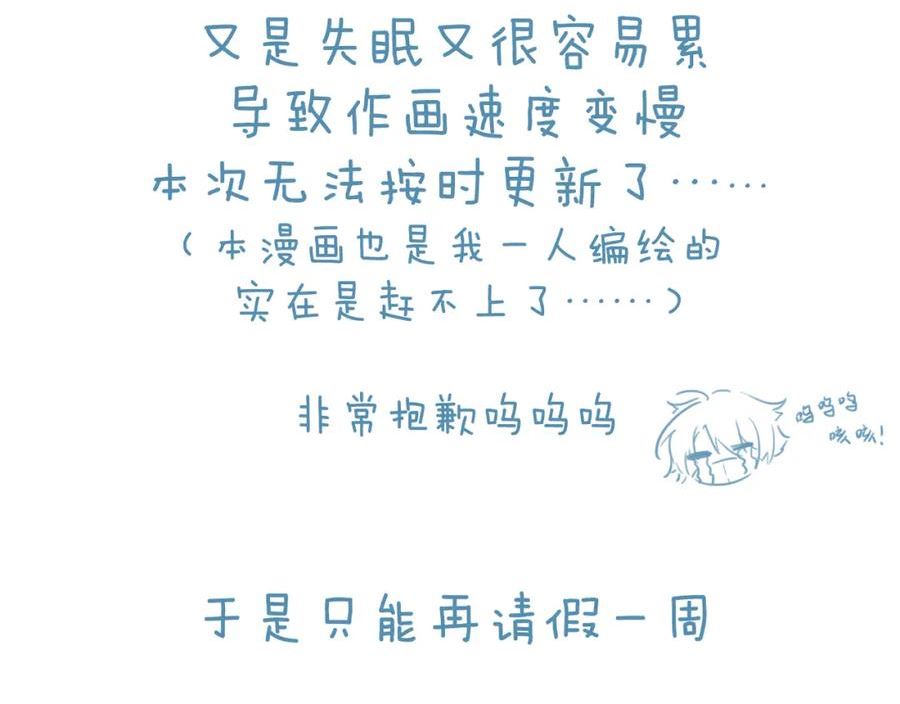 又是失眠又很容易累
导致作画速度变慢
本次无法按时更新了……
（本漫画也是我一人编绘的
实在是赶不上了……）
非常抱歉呜呜呜
呜呜呜
咳咳！
于是只能再请假一周